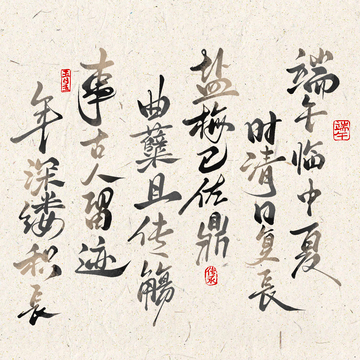 端午临中夏
时清日复长
盐梅已佐鼎
曲蘖且传觞
事古人留迹
年深缕积长
端午